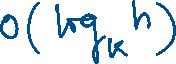 O(log_k h)